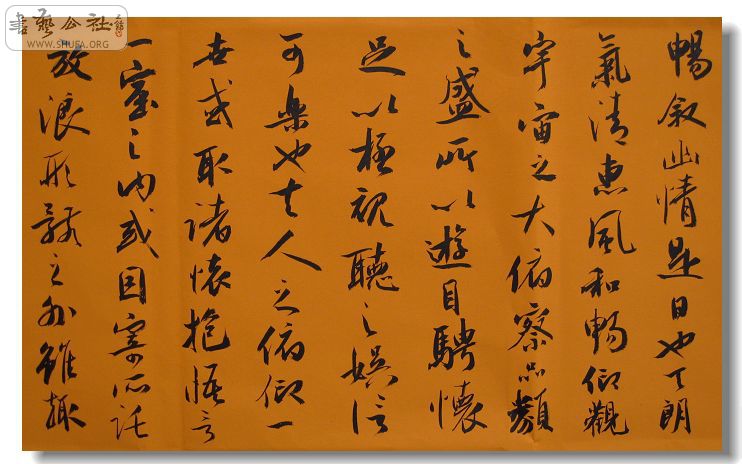 暢叙幽情是日也天朗
氣清惠風和暢仰觀
宇宙之大俯察品類
之盛所以遊目騁懷
足以極視聽之娛信
可樂也夫人之俯仰一
世或取諸懷抱悟言
一室之内或因寄所託
放浪形骸之外雖趣
書藝公社
WWW.SHUFA.ORG